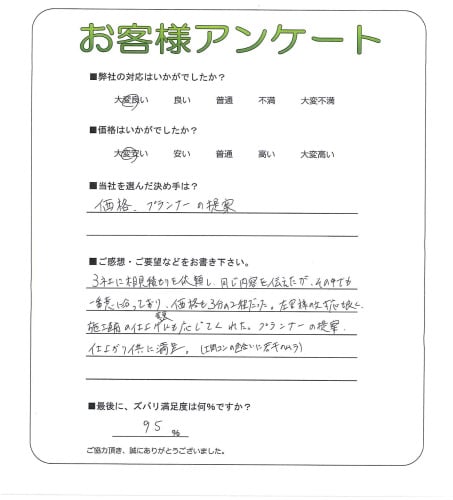 お客様アンケート
■弊社の対応はいかがでしたか?
大変良い 良い 普通 不満 大変不満
■価格はいかがでしたか?
大変安い 安い 普通 高い 大変高い
■当社を選んだ決め手は?
価格、プランナーの提案
■ご感想・ご要望などをお書き下さい。
3社に相見積りを依頼し、同じ内容を伝えたが、その中でも
一番 に なっており、価格も3分の2程だった。 の対応も良く、
施工 の仕上げ にも応じてくれた。プランナーの提案、
仕上がり共に満足。(土間コンの色合いに若干のムラ)
■最後に、ズバリ満足度は何%ですか?
95 %
ご協力頂き、誠にありがとうございました。